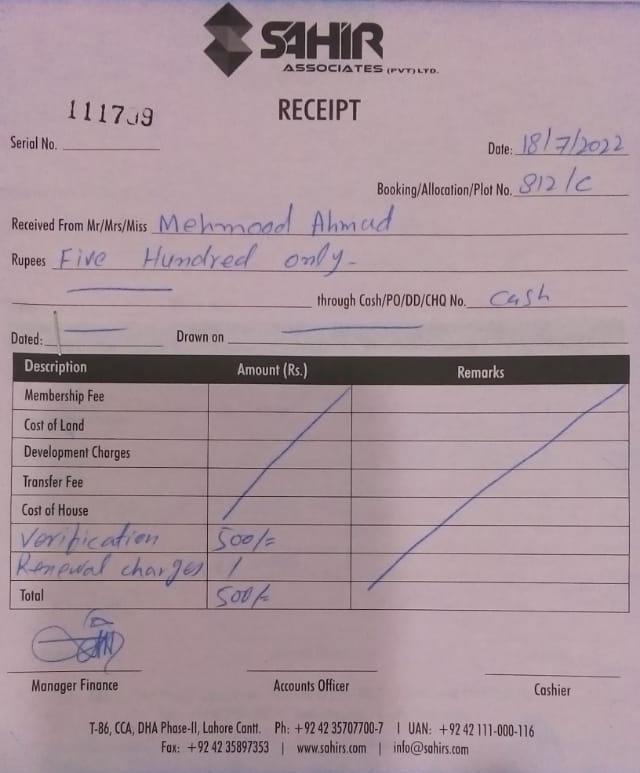 SAHIR
ASSOCIATES (PVT) LTD.
RECEIPT
Serial No.
Date: 18/7/2022
Booking/Allocation/Plot No. 812/C
Received From Mr/Mrs/Miss Mehmood Ahmad
Rupees Five Hundred only-
through Cash/PO/DD/CHQ No. Cash
Dated: Drawn on
Description Amount (Rs.) Remarks
Membership Fee
Cost of Land
Development Charges
Transfer Fee
Cost of House
Verification 500/=
Renewal charges /
Total 500/=
Manager Finance Accounts Officer Cashier
T-86, CCA, DHA Phase-II, Lahore Cantt. Ph: +92 42 35707700-7 | UAN: +92 42 111-000-116
Fax: +92 42 35897353 | www.sahirs.com | info@sahirs.com